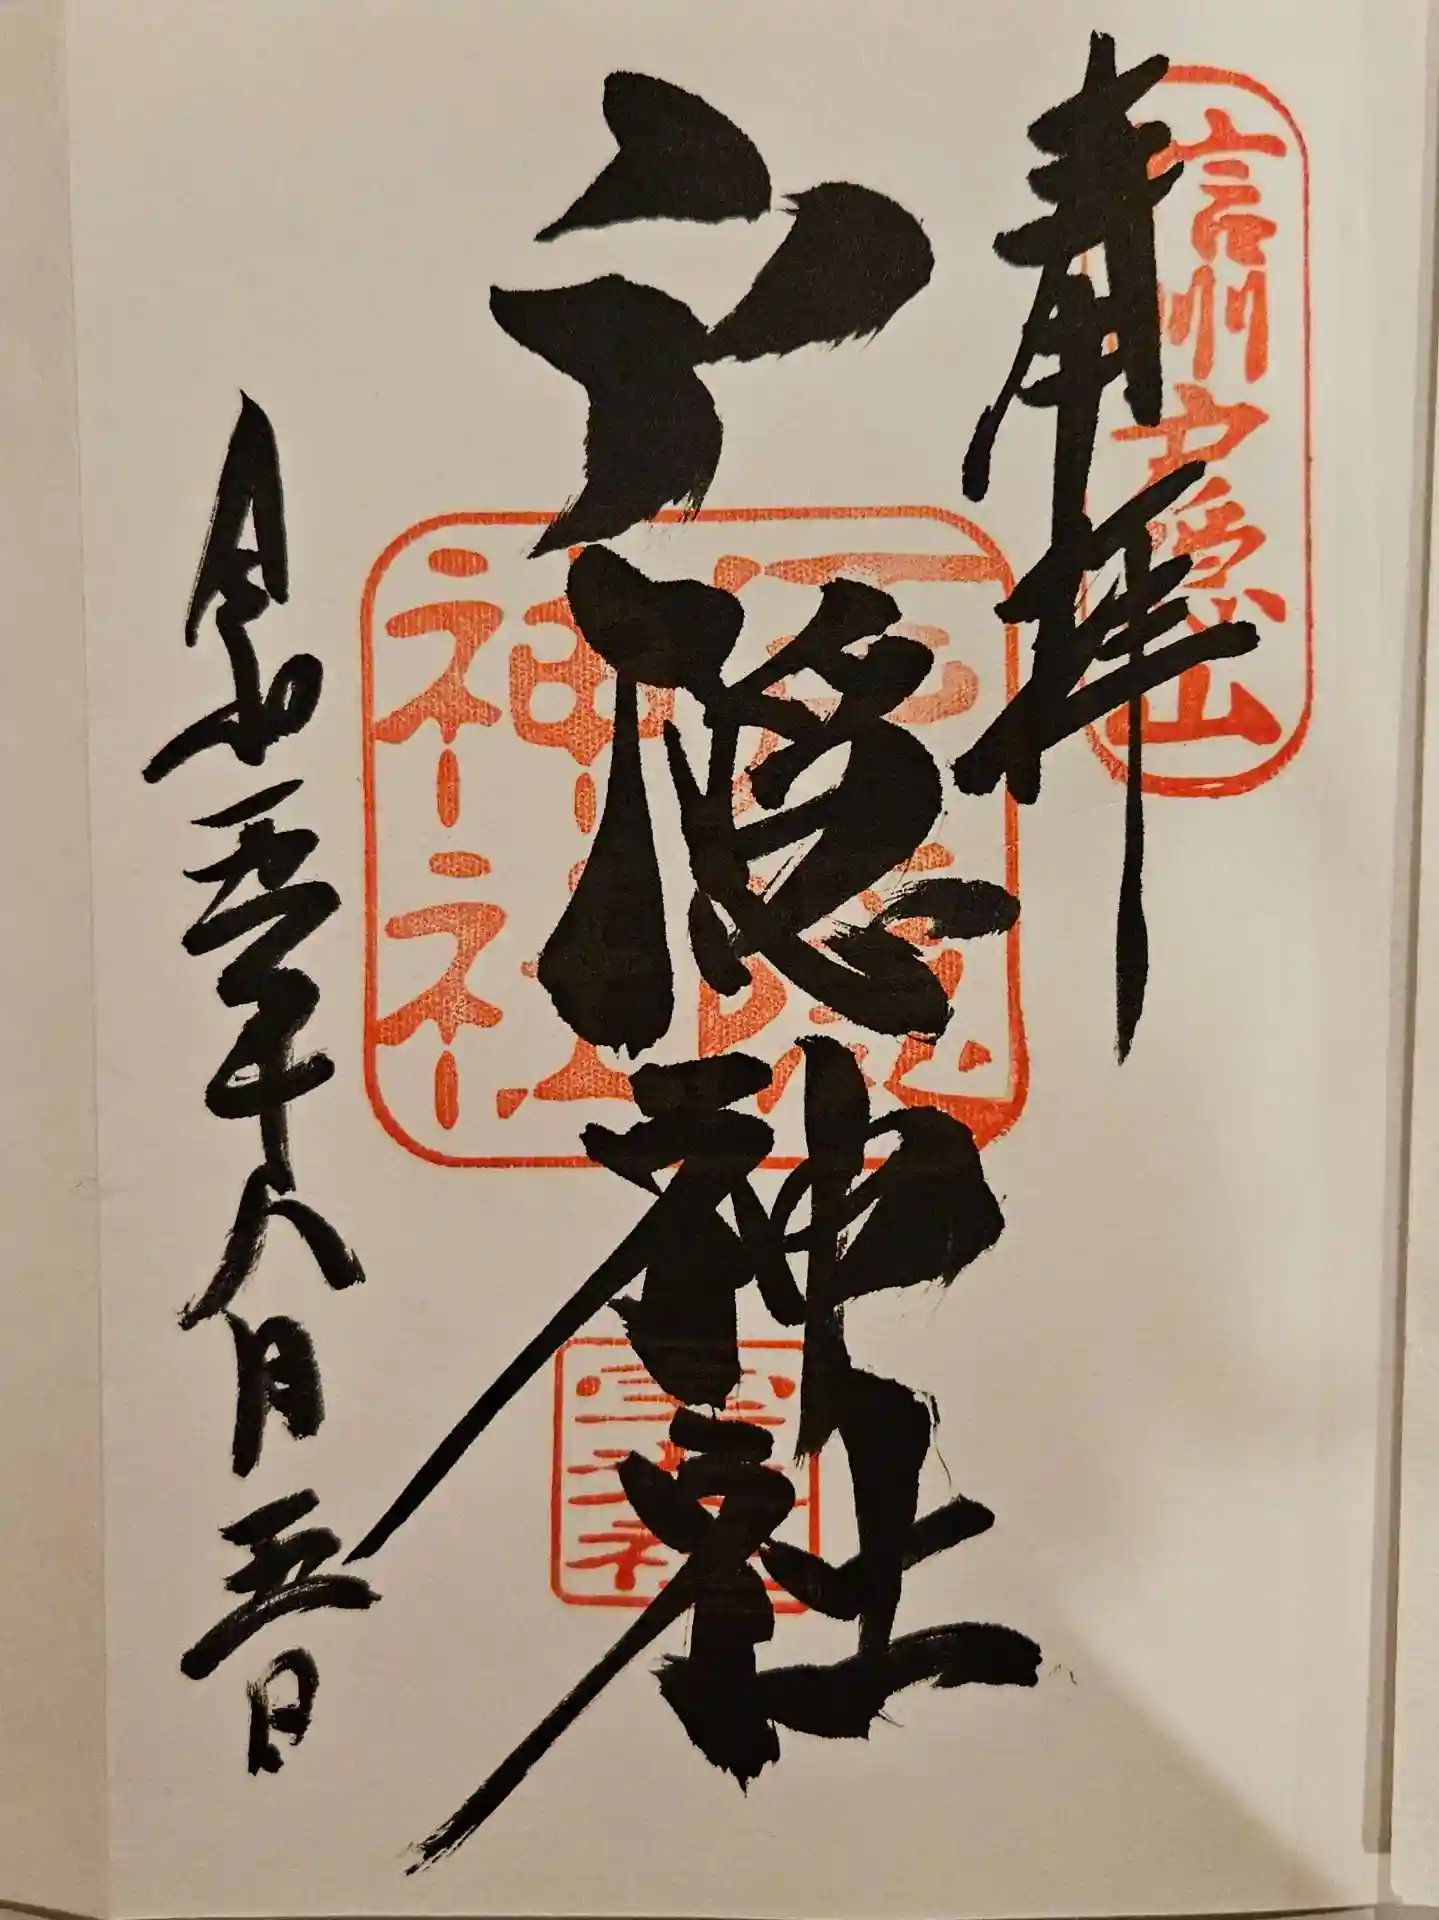 信州戸隠山
奉拝
戸隠神社
戸隠神社
宝光社
令和五年八月五日